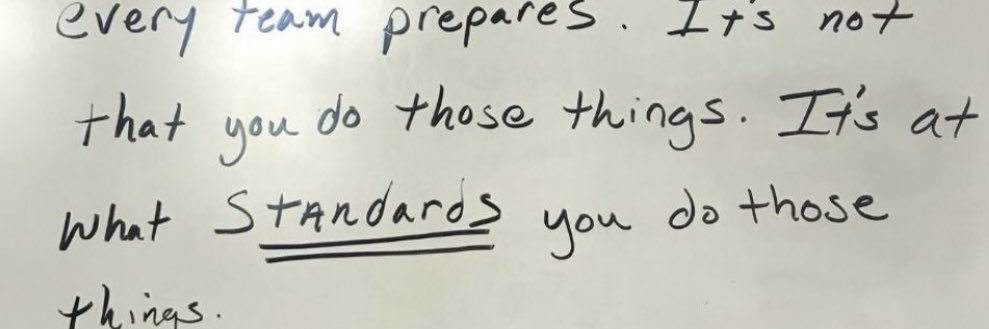 every team prepares. It's not
that you do those things. It's at
what Standards you do those
things.